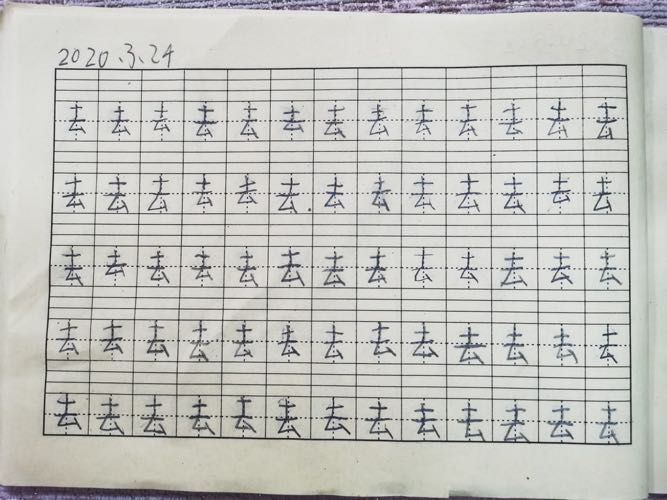 2020.3.24
去去去去去去去去去去去去去
去去去去去去去去去去去去去
去去去去去去去去去去去去去
去去去去去去去去去去去去去
去去去去去去去去去去去去去